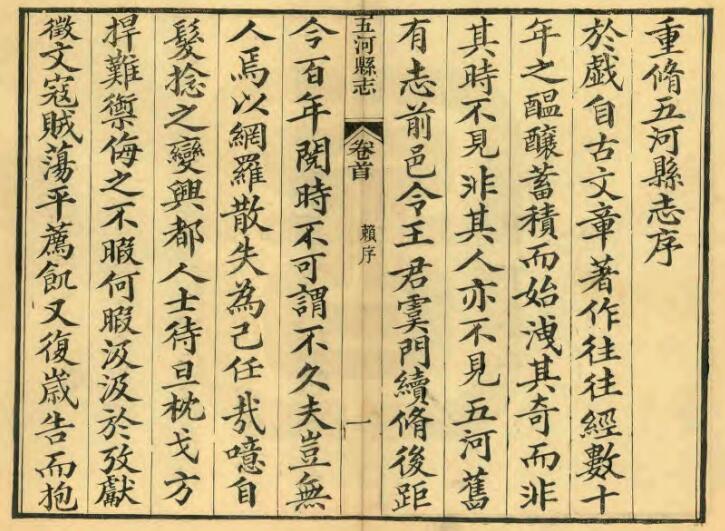 重脩五河縣志序
於戲自古文章著作往往經數十
年之醖釀蓄積而始洩其奇而非
其時不見非其人亦不見五河舊
有志前邑令王君虞門續脩後距
五河縣志
卷首
賴序
一
今百年閱時不可謂不久夫豈無
人焉以網羅散失為己任㢤噫自
髮捻之變興都人士待旦枕戈方
捍難禦侮之不暇何暇汲汲於攷獻
徵文寇賊蕩平薦飢又復歲告而抱